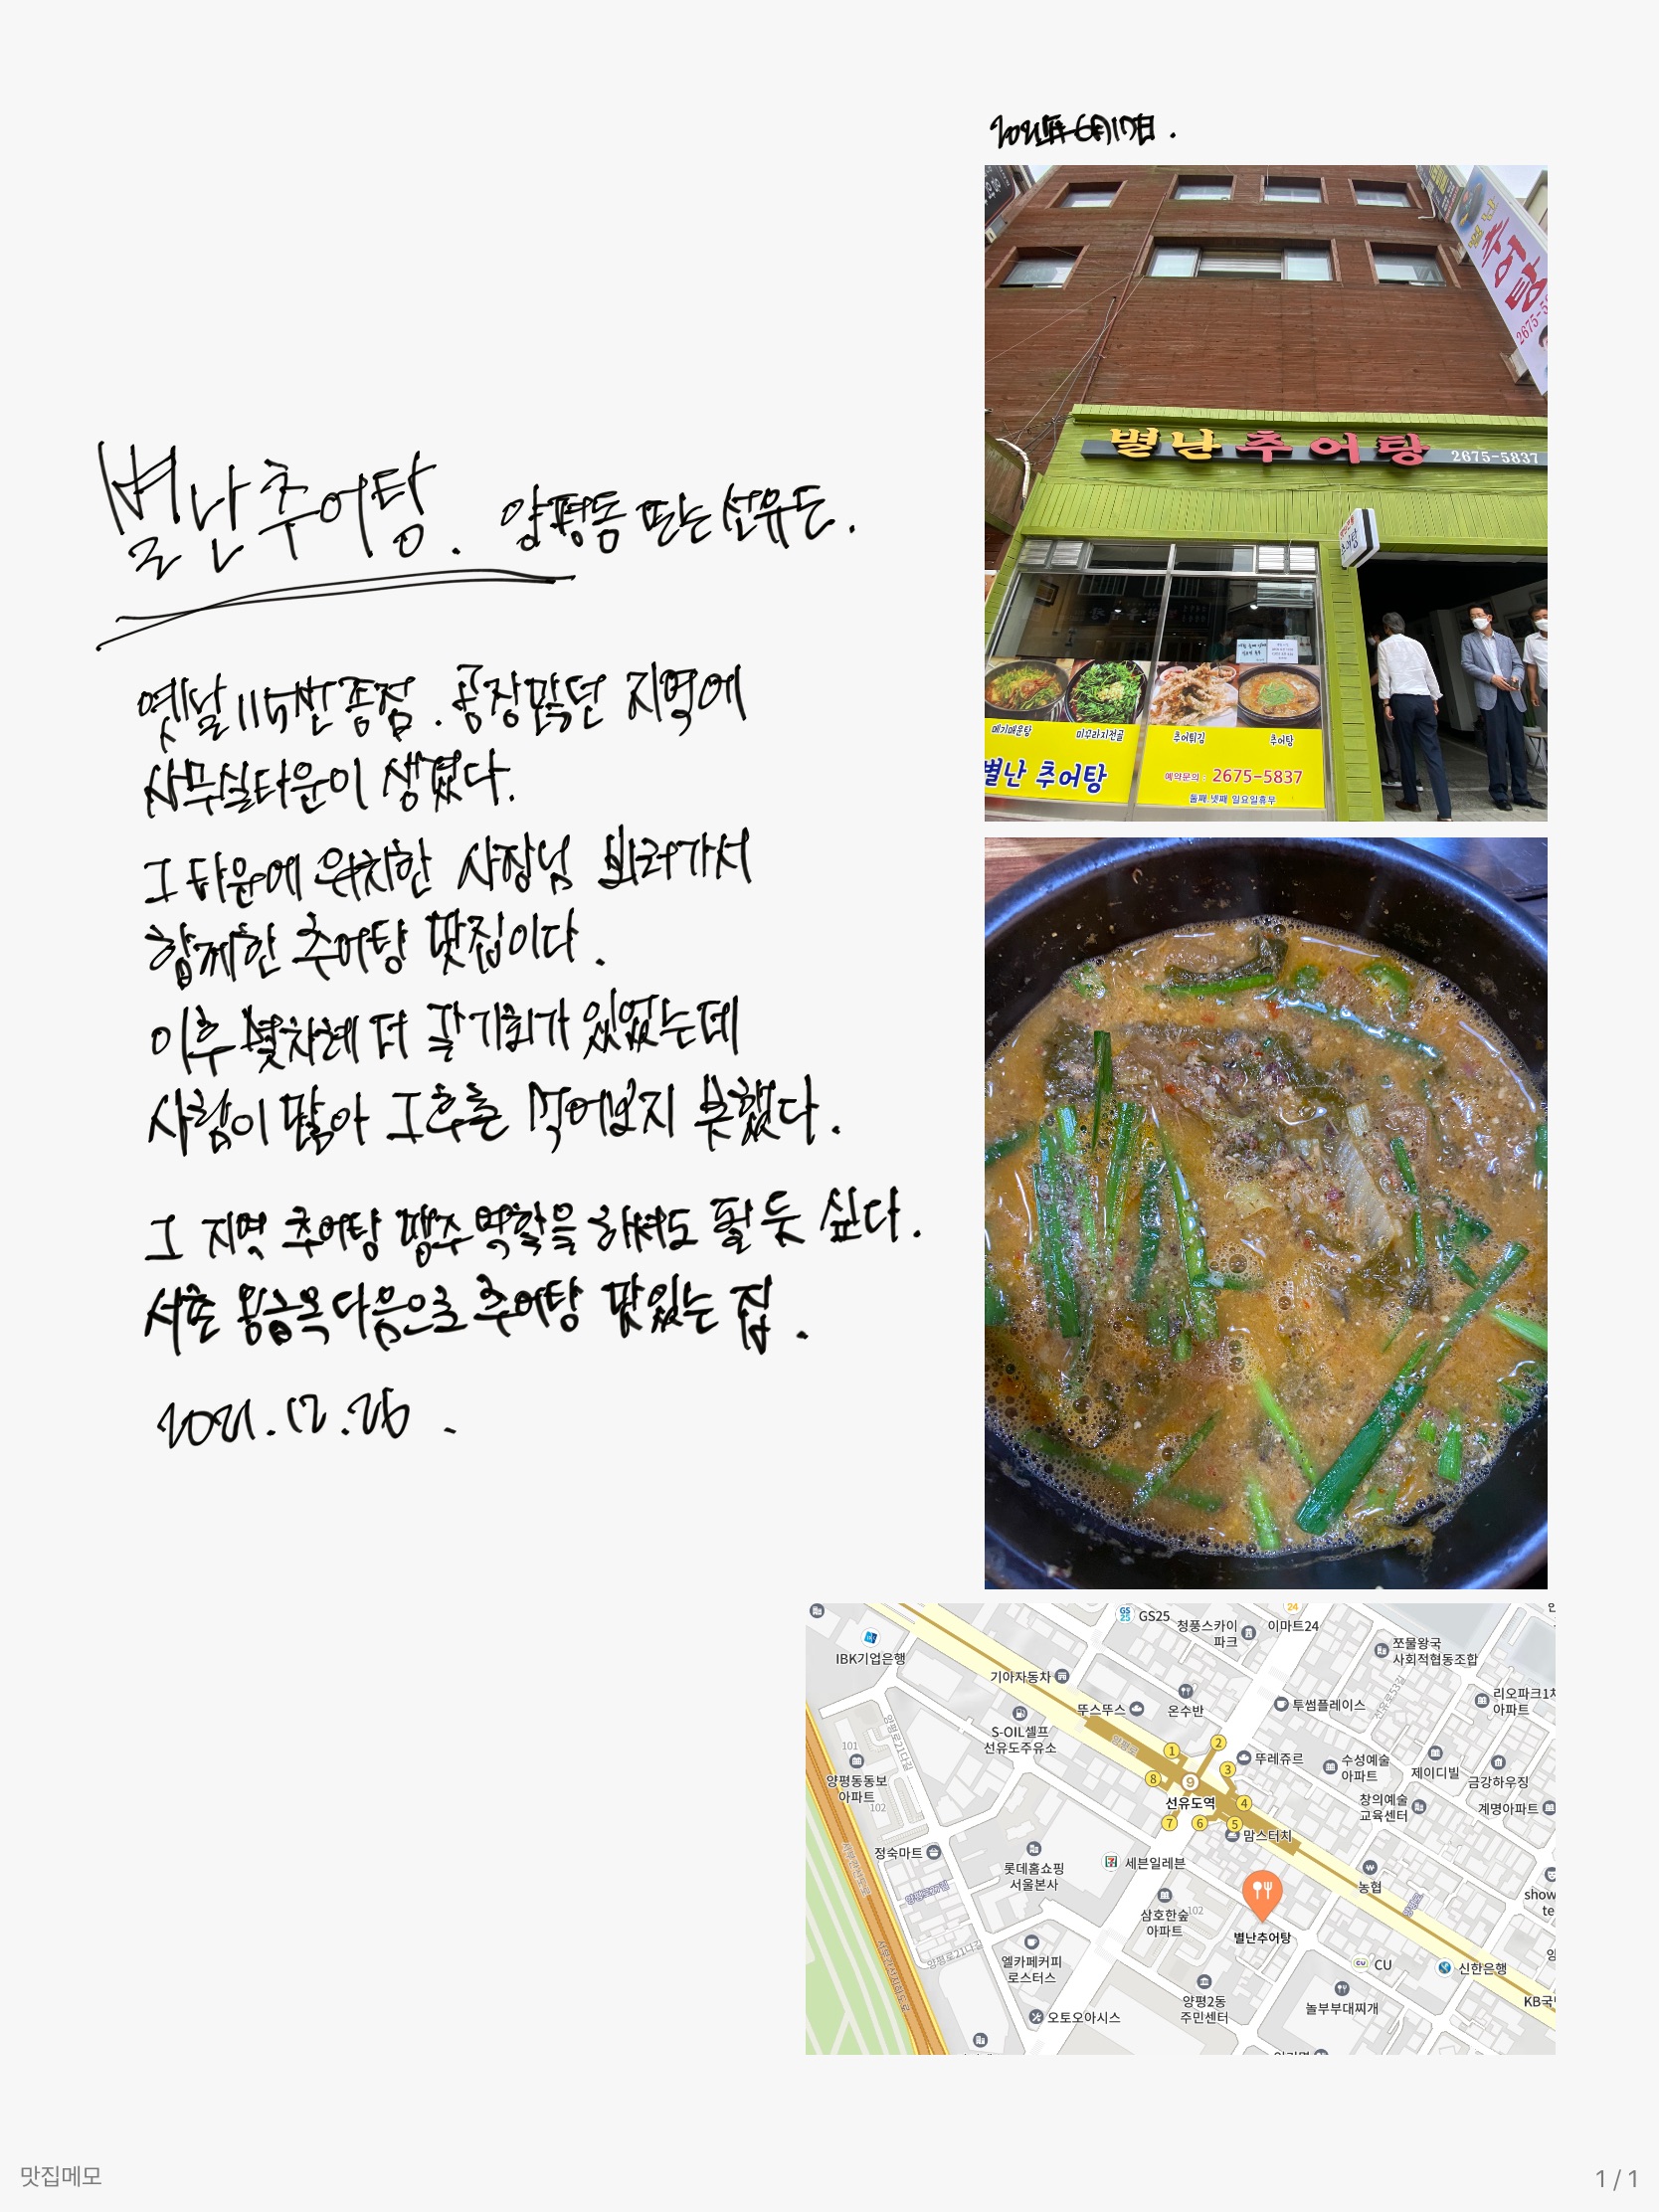 2021年 6月17日.
별난추어탕. 양평동 또는 선유도.
옛날 115번 종점. 공장많던 지역에
사무실타운이 생겼다.
그 타운에 위치한 사장님 뵈러가서
함께한 추어탕 맛집이다.
이후 몇차례 더 갈기회가 있었는데
사람이 많아 그후론 먹어보지 못했다.
그 지역 추어탕 맹주역할을 해도 될 듯 싶다.
서촌 용금옥 다음으로 추어탕 맛있는 집.
2021.12.26.
별난 추어탕
2675-5
별난 추어탕 2675-5837
추어탕
메기매운탕 미꾸라지전골 추어튀김 추어탕
별난 추어탕
예약문의 : 2675-5837
둘째.넷째 일요일휴무
GS25
청풍스카이
파크
24
이마트24
IBK기업은행
쪼물왕국
사회적협동조합
기아자동차
뚜스뚜스
온수반
투썸플레이스
선유로53길
리오파크1차
아파트
S-OIL셀프
선유도주유소
양평로21다길
양평로
101
양평동동보
아파트
102
1
2
3
4
5
6
7
8
9
선유도역
뚜레쥬르
수성예술
아파트
제이디빌
금강하우징
창의예술
교육센터
계명아파트
맘스터치
정숙마트
롯데홈쇼핑
서울본사
세븐일레븐
농협
show
te
삼호한숲
아파트
102
별난추어탕
양평로
양평로21나길
엘카페커피
로스터스
CU
신한은행
양평2동
주민센터
놀부부대찌개
KB국
오토오아시스
맛집메모
1 / 1